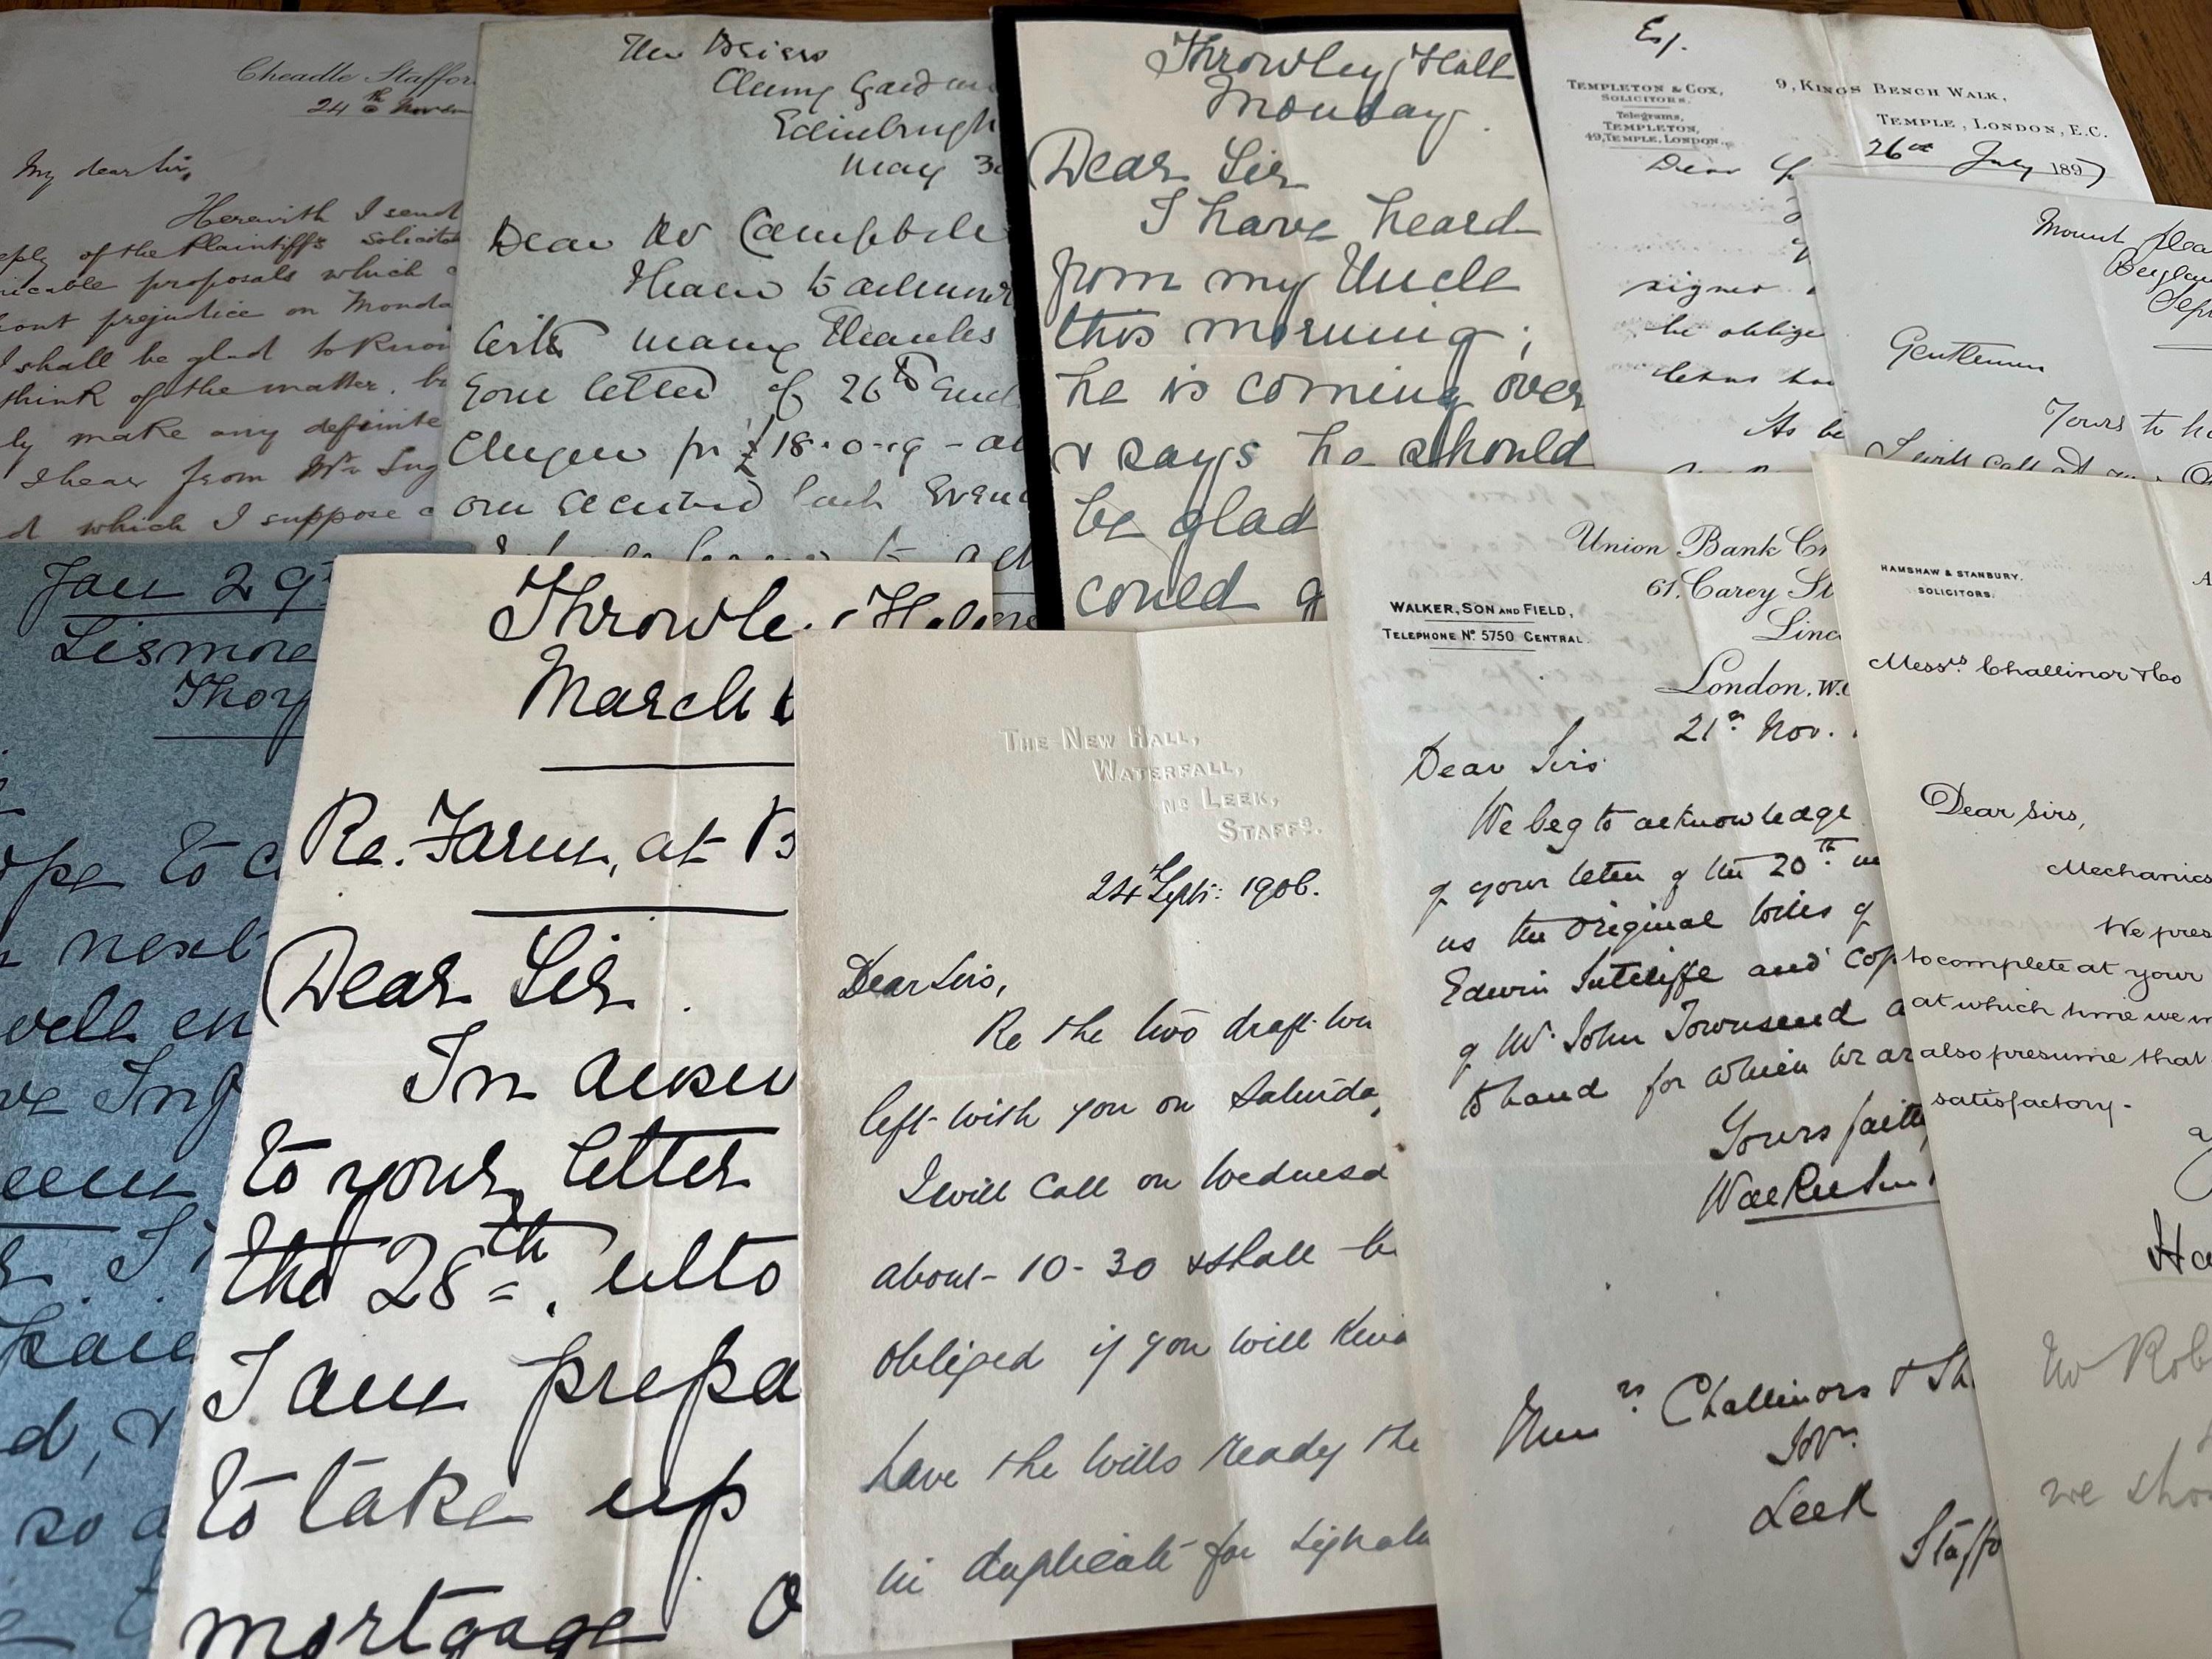 Cheadle Staffor
24th Novem
My dear Sir,
Herewith I send
eply of the Plaintiff's solicito
icable proposals which
out prejudice on Monda
I shall be glad to know
think of the matter. b
ly make any definite
I hear from Mr. Ing
d which I suppose
The Briers
Cluny Gardens
Edinburgh
May 30
Dear Mr Campbell
I have to acknow
with many thanks
your letter of 26th
Cheque for £18-0-19 -
Throwley Hall
Monday.
Dear Sir
I have heard
from my Uncle
this morning;
he is coming over
& says he should
be glad
could
Esq.
TEMPLETON & COX,
SOLICITORS.
Telegrams,
TEMPLETON,
49, TEMPLE, LONDON.
9, KINGS BENCH WALK,
TEMPLE, LONDON, E.C.
26th July 1897
Dear
signe
be oblige
let us
As
Mount Plea
Sep
Gentlemen
Yours to h
I will call at
Jan 29th
Lismore
Thorp
ope to c
next
well en
ve Ing
paid
d, &
so a
Throwley Hall
March
Re. Farm, at B
Dear Sir.
In answ
to your letter
the 28th. ulto
I am prepa
to take up
mortgage
THE NEW HALL,
WATERFALL,
NR LEEK,
STAFFS.
24th Sept: 1906.
Dear Sirs,
Re the two draft wi
left with you on Saturday
I will call on Wednesd
about 10-30 & shall be
obliged if you will kind
have the wills ready the
in duplicate for signatu
WALKER, SON AND FIELD,
TELEPHONE No. 5750 CENTRAL.
Union Bank Ch
61, Carey St
Linc
London, W.C
21st Nov.
Dear Sirs
We beg to acknowledge
of your letter of the 20th
us the original wills of
Edwin Sutcliffe and cop
of Mr. John Townsend
to hand for which we are
Yours faith
Walker Son
Messrs Challinors & Sh
Leek
Staffo
HAMSHAW & STANBURY.
SOLICITORS.
A
Messrs. Challinor & Co
Dear Sirs,
Mechanics
We pres
to complete at your
at which time we
also presume that
satisfactory.
Ha
Mr Rob
we sho